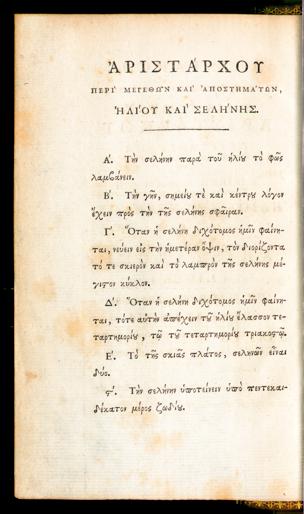 ἈΡΙΣΤΆΡΧΟΥ
ΠΕΡῚ ΜΕΓΕΘΩ͂Ν ΚΑῚ ἈΠΟΣΤΗΜΆΤΩΝ,
ἩΛΊΟΥ ΚΑῚ ΣΕΛΉΝΗΣ.
Α΄. Τὴν σελήνην παρὰ τοῦ ἡλίου τὸ φῶς
λαμβάνειν.
Β΄. Τὴν γῆν, σημείου τὲ καὶ κέντρου λόγον
ἔχειν πρὸς τὴν τῆς σελήνης σφαῖραν.
Γ΄. Ὅταν ἡ σελήνη διχότομος ἡμῖν φαίνη-
ται, νεύειν εἰς τὴν ἡμετέραν ὄψιν, τὸν διορίζοντα
τό τε σκιερὸν καὶ τὸ λαμπρὸν τῆς σελήνης μέ-
γιστον κύκλον.
Δ΄. Ὅταν ἡ σελήνη διχότομος ἡμῖν φαίνη-
ται, τότε αὐτὴν ἀπέχειν τοῦ ἡλίου ἔλασσον τε-
ταρτημορίου, τῷ τοῦ τεταρτημορίου τριακοστῷ.
Ε΄. Τὸ τῆς σκιᾶς πλάτος, σεληνῶν εἶναι
δύο.
Ϛ΄. Τὴν σελήνην ὑποτείνειν ὑπὸ πεντεκαι-
δέκατον μέρος ζωδίου.